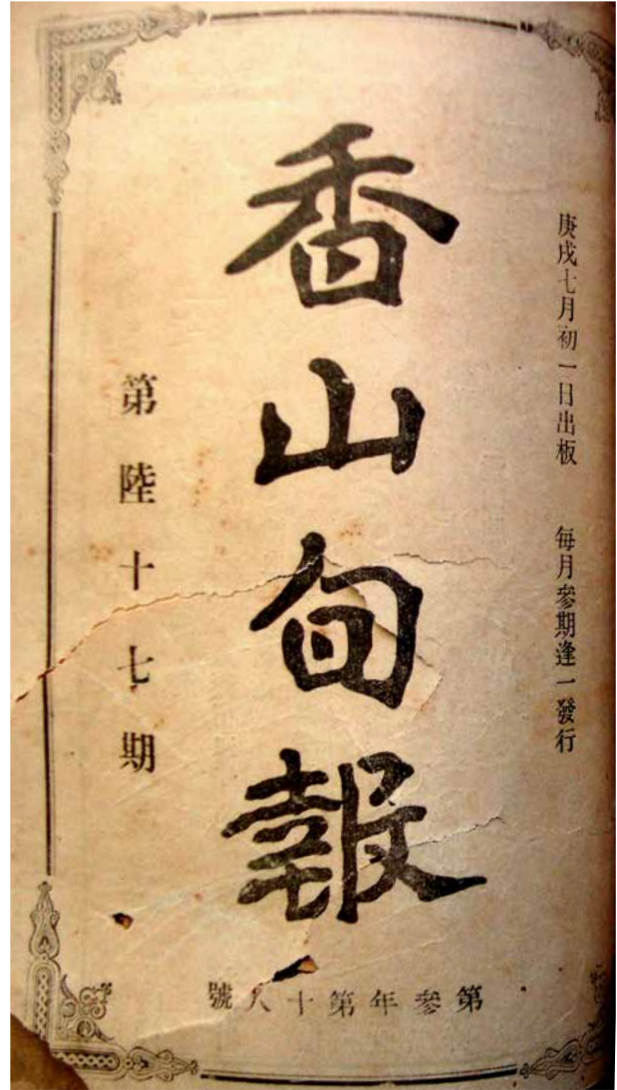 庚戌七月初一日出板 每月參期逢一發行
香山旬報
第陸十七期
第參年第十八號